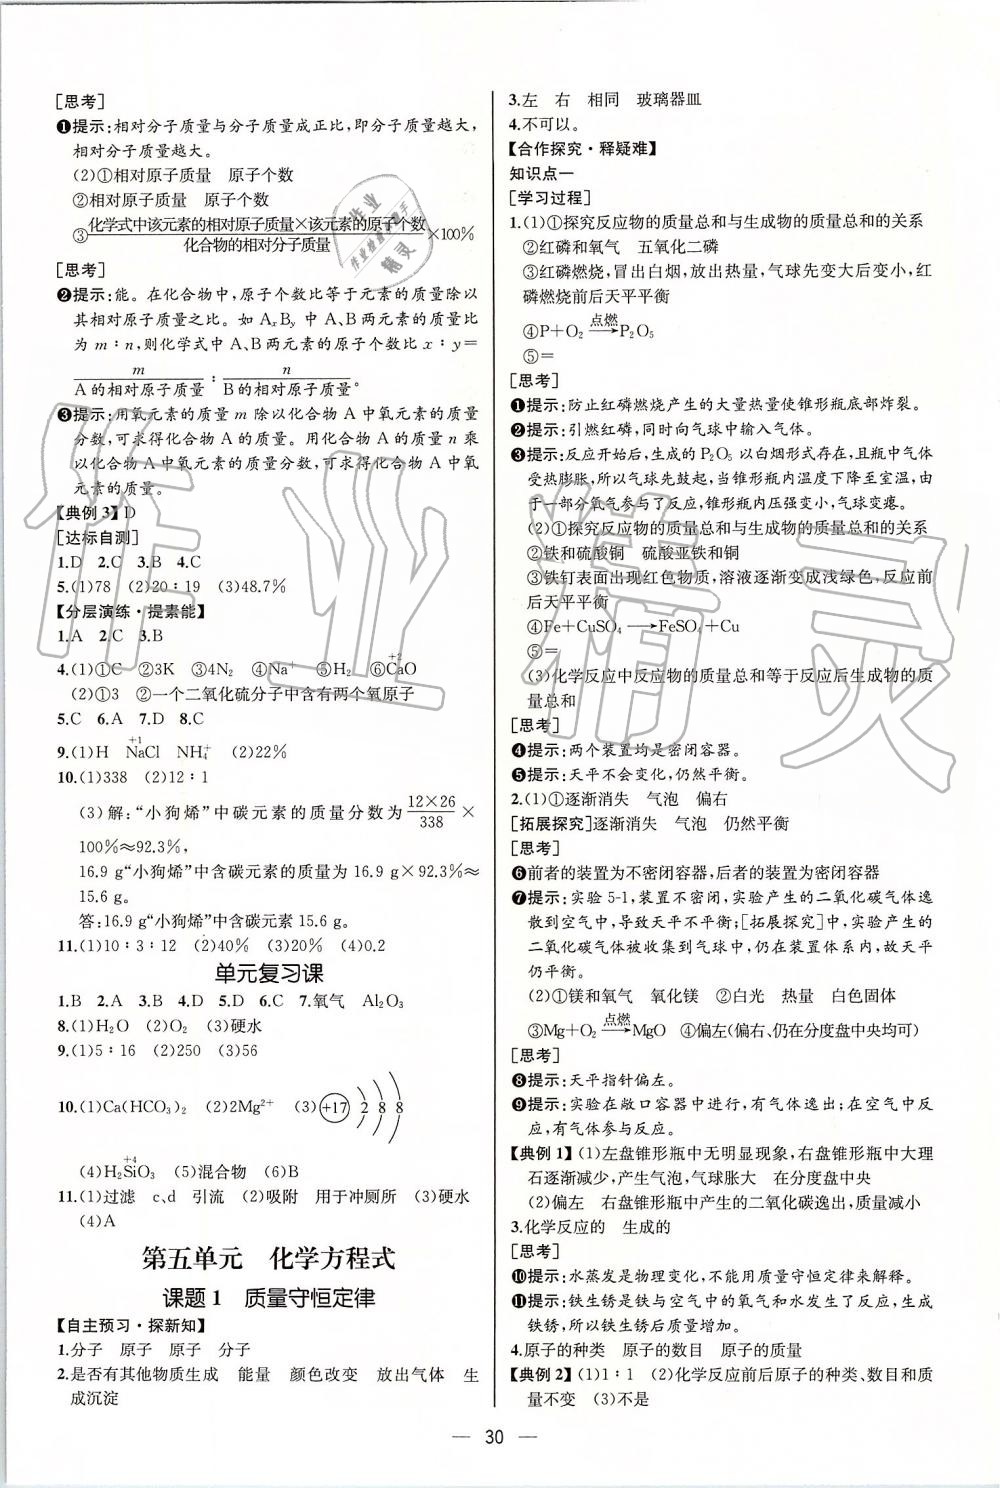 [思考]
❶提示:相对分子质量与分子质量成正比,即分子质量越大,
相对分子质量越大。
(2)①相对原子质量 原子个数
②相对原子质量 原子个数
③化学式中该元素的相对原子质量×该元素的原子个数/化合物的相对分子质量×100%
[思考]
❷提示:能。在化合物中,原子个数比等于元素的质量除以
其相对原子质量之比。如 AxBy 中 A、B两元素的质量比
为 m∶n,则化学式中 A、B 两元素的原子个数比 x∶y=
m/A的相对原子质量∶n/B的相对原子质量。
❸提示:用氧元素的质量 m 除以化合物 A 中氧元素的质量
分数,可求得化合物 A 的质量。用化合物 A 的质量 n 乘
以化合物 A 中氧元素的质量分数,可求得化合物 A 中氧
元素的质量。
【典例 3】D
[达标自测]
1.D 2.C 3.B 4.C
5.(1)78 (2)20∶19 (3)48.7%
【分层演练·提素能】
1.A 2.C 3.B
4.(1)①C ②3K ③4N₂ ④Na⁺ ⑤H₂ ⑥CaO(+2)
(2)①3 ②一个二氧化硫分子中含有两个氧原子
5.C 6.A 7.D 8.C
9.(1)H NaCl(+1) NH₄⁺ (2)22%
10.(1)338 (2)12∶1
(3)解:“小狗烯”中碳元素的质量分数为12×26/338×
100%≈92.3%,
16.9 g“小狗烯”中含碳元素的质量为16.9 g×92.3%≈
15.6 g。
答:16.9 g“小狗烯”中含碳元素 15.6 g。
11.(1)10∶3∶12 (2)40% (3)20% (4)0.2
单元复习课
1.B 2.A 3.B 4.D 5.D 6.C 7.氧气 Al₂O₃
8.(1)H₂O (2)O₂ (3)硬水
9.(1)5∶16 (2)250 (3)56
10.(1)Ca(HCO₃)₂ (2)2Mg²⁺ (3)+17 2 8 8
(4)H₂SiO₃(+4) (5)混合物 (6)B
11.(1)过滤 c、d 引流 (2)吸附 用于冲厕所 (3)硬水
(4)A
第五单元 化学方程式
课题 1 质量守恒定律
【自主预习·探新知】
1.分子 原子 原子 分子
2.是否有其他物质生成 能量 颜色改变 放出气体 生
成沉淀
3.左 右 相同 玻璃器皿
4.不可以。
【合作探究·释疑难】
知识点一
[学习过程]
1.(1)①探究反应物的质量总和与生成物的质量总和的关系
②红磷和氧气 五氧化二磷
③红磷燃烧,冒出白烟,放出热量,气球先变大后变小,红
磷燃烧前后天平平衡
④P+O₂ —点燃→ P₂O₅
⑤=
[思考]
❶提示:防止红磷燃烧产生的大量热量使锥形瓶底部炸裂。
❷提示:引燃红磷,同时向气球中输入气体。
❸提示:反应开始后,生成的 P₂O₅ 以白烟形式存在,且瓶中气体
受热膨胀,所以气球先鼓起,当锥形瓶内温度下降至室温,由
于一部分氧气参与了反应,锥形瓶内压强变小,气球变瘪。
(2)①探究反应物的质量总和与生成物的质量总和的关系
②铁和硫酸铜 硫酸亚铁和铜
③铁钉表面出现红色物质,溶液逐渐变成浅绿色,反应前
后天平平衡
④Fe+CuSO₄ ⟶ FeSO₄+Cu
⑤=
(3)化学反应中反应物的质量总和等于反应后生成物的质
量总和
[思考]
❹提示:两个装置均是密闭容器。
❺提示:天平不会变化,仍然平衡。
2.(1)①逐渐消失 气泡 偏右
[拓展探究]逐渐消失 气泡 仍然平衡
[思考]
❻前者的装置为不密闭容器,后者的装置为密闭容器
❼提示:实验 5-1,装置不密闭,实验产生的二氧化碳气体逸
散到空气中,导致天平不平衡;[拓展探究]中,实验产生的
二氧化碳气体被收集到气球中,仍在装置体系内,故天平
仍平衡。
(2)①镁和氧气 氧化镁 ②白光 热量 白色固体
③Mg+O₂ —点燃→ MgO ④偏左(偏右、仍在分度盘中央均可)
[思考]
❽提示:天平指针偏左。
❾提示:实验在敞口容器中进行,有气体逸出;在空气中反
应,有气体参与反应。
【典例 1】(1)左盘锥形瓶中无明显现象,右盘锥形瓶中大理
石逐渐减少,产生气泡,气球胀大 在分度盘中央
(2)偏左 右盘锥形瓶中产生的二氧化碳逸出,质量减小
3.化学反应的 生成的
[思考]
❿提示:水蒸发是物理变化,不能用质量守恒定律来解释。
⓫提示:铁生锈是铁与空气中的氧气和水发生了反应,生成
铁锈,所以铁生锈后质量增加。
4.原子的种类 原子的数目 原子的质量
【典例 2】(1)1∶1 (2)化学反应前后原子的种类、数目和质
量不变 (3)不是
— 30 —
作业精灵
作业检查小助手
作业
精灵